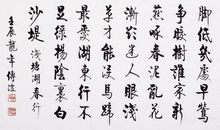 脚低幾處早鶯
爭暖樹誰家新
燕啄春泥亂花
漸欲迷人眼淺
草才能沒馬蹄
最愛湖東行不
足綠楊陰裏白
沙堤 錢塘湖春行
壬辰龍年傅